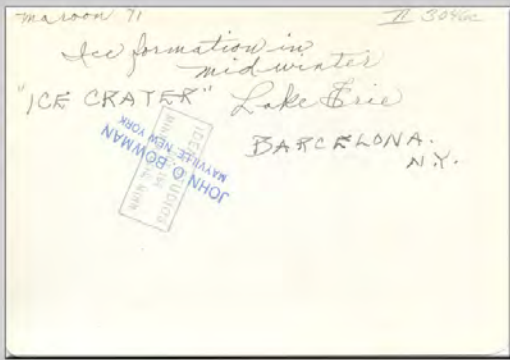 maroon 71
II 3046c
Ice formation in
mid winter
"ICE CRATER" Lake Erie
BARCELONA.
N.Y.
JOHN O. BOWMAN
MAYVILLE NEW YORK